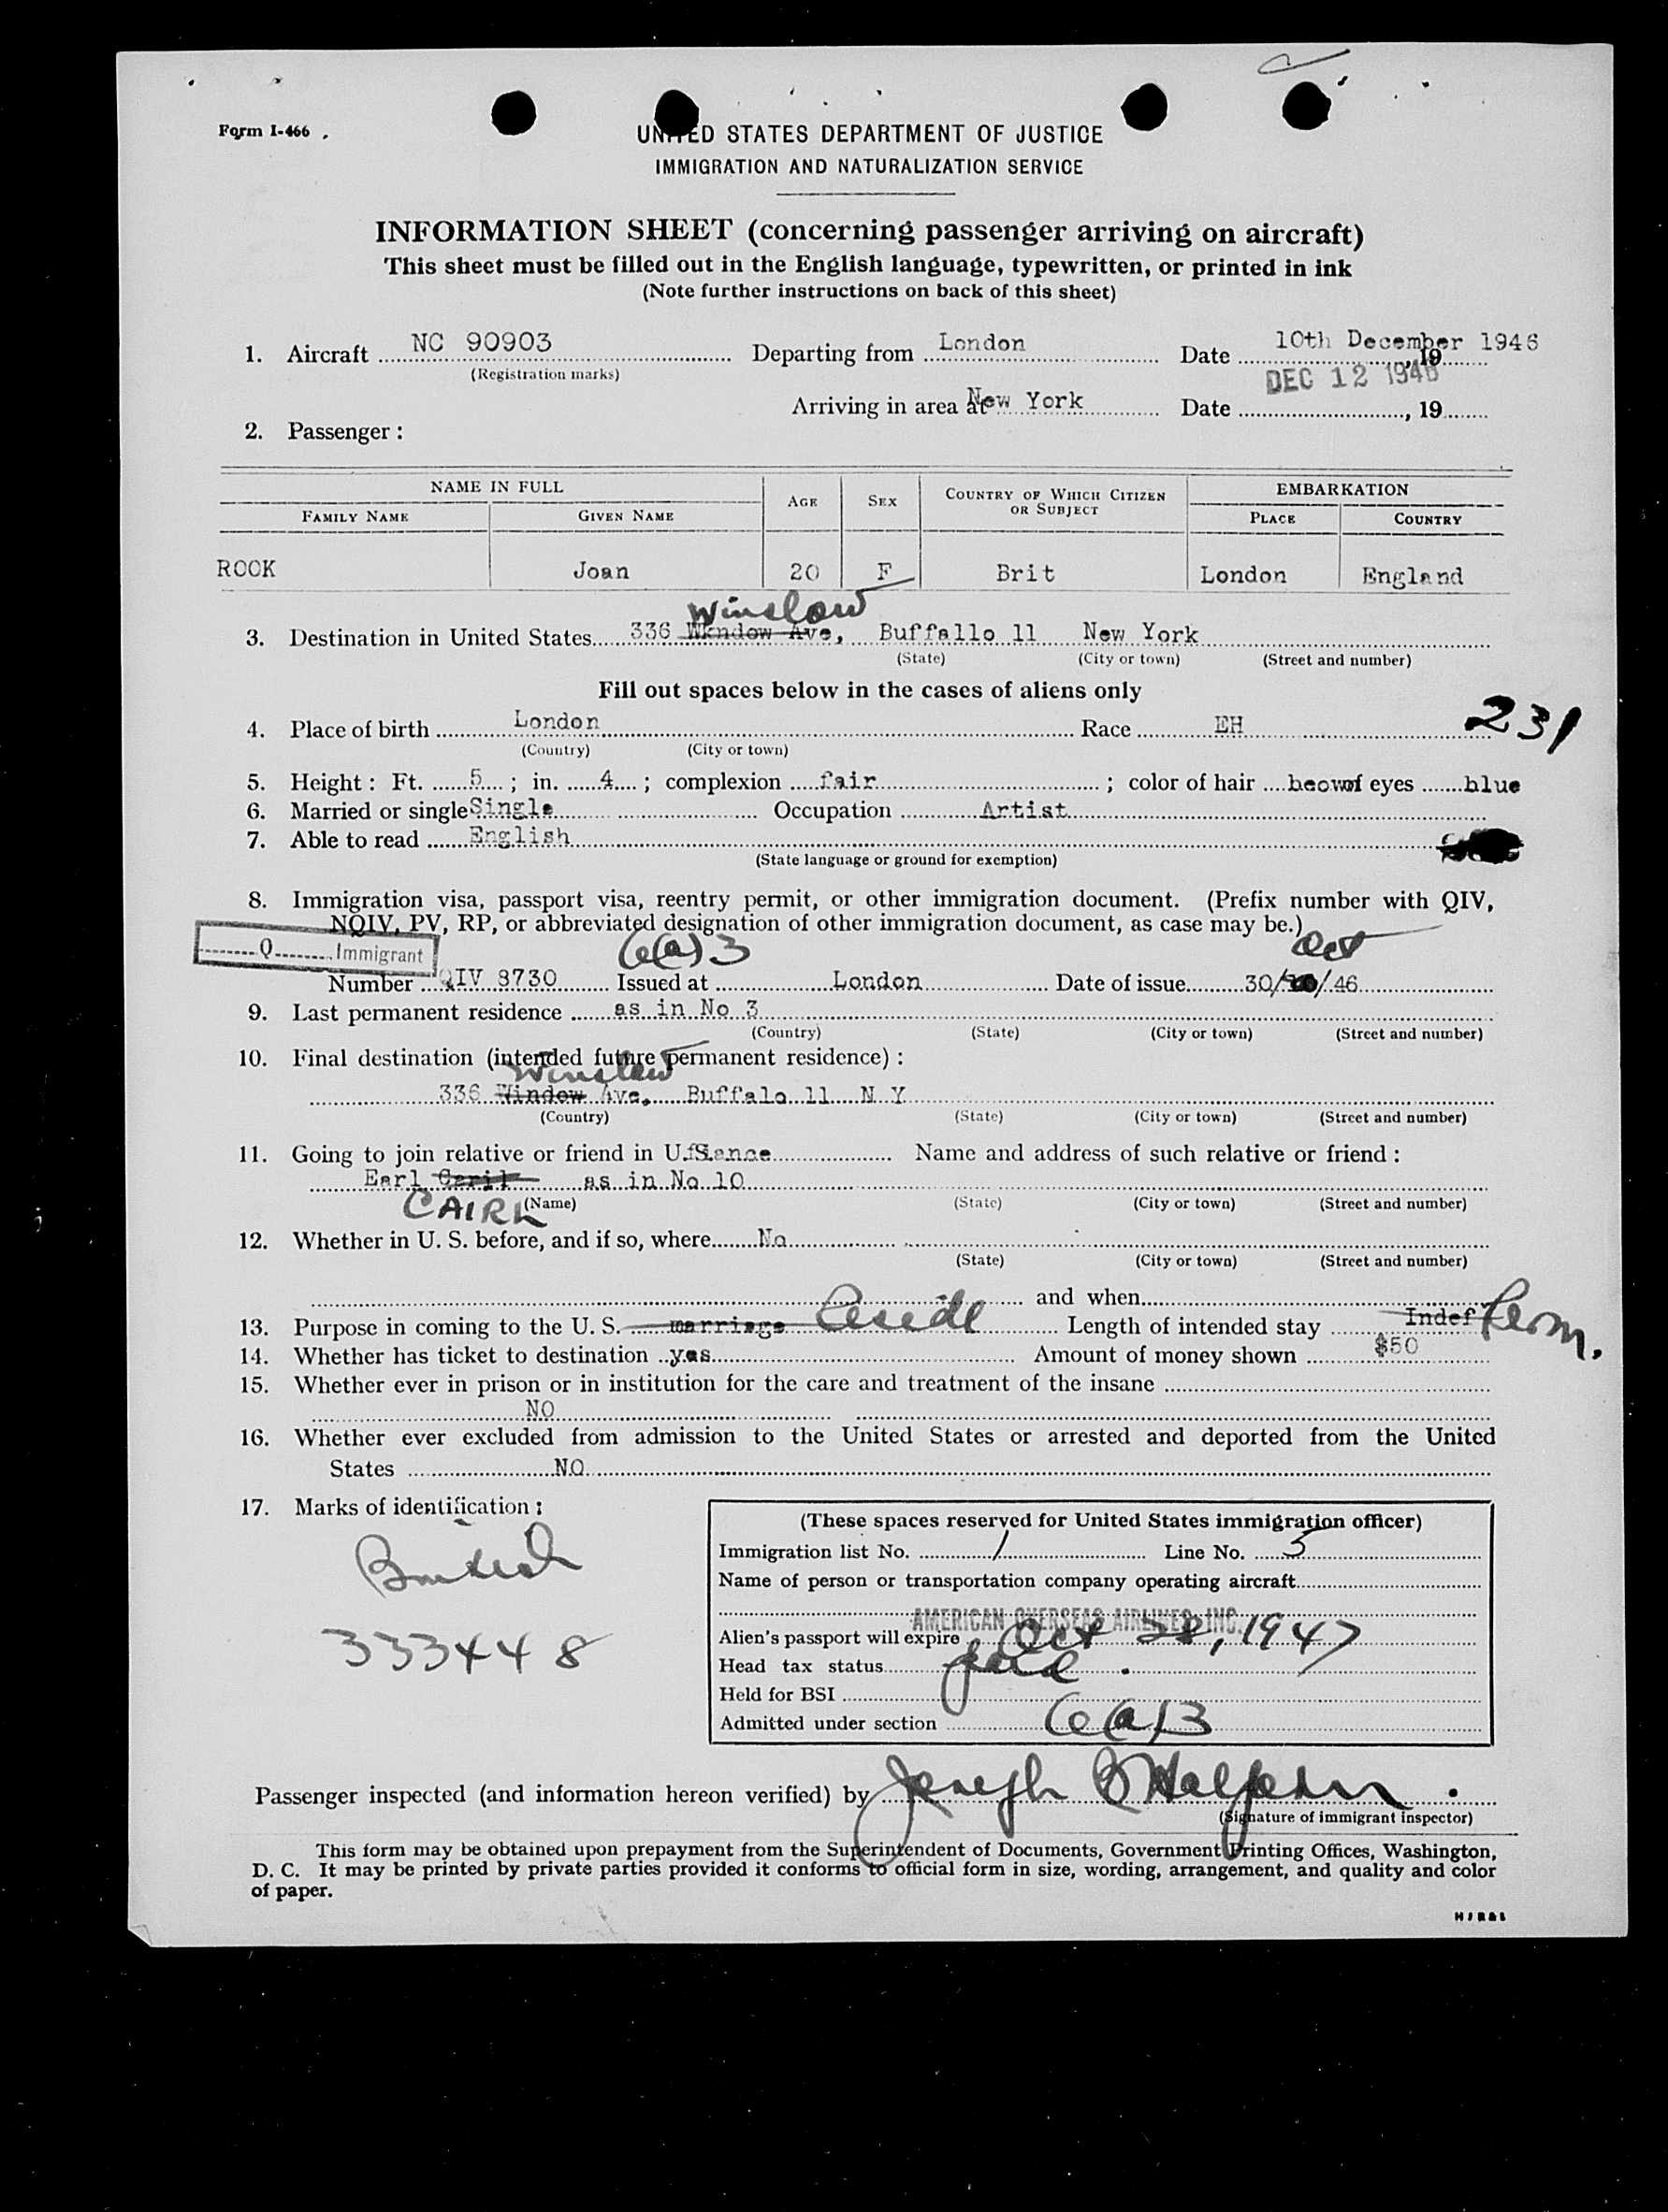 Form I-466
UNITED STATES DEPARTMENT OF JUSTICE
IMMIGRATION AND NATURALIZATION SERVICE
INFORMATION SHEET (concerning passenger arriving on aircraft)
This sheet must be filled out in the English language, typewritten, or printed in ink
(Note further instructions on back of this sheet)
1. Aircraft NC 90903 Departing from London Date 10th December 1946, 19
(Registration marks)
DEC 12 1946
Arriving in area at New York Date , 19
2. Passenger :
NAME IN FULL AGE SEX COUNTRY OF WHICH CITIZEN OR SUBJECT EMBARKATION
FAMILY NAME GIVEN NAME PLACE COUNTRY
ROCK Joan 20 F Brit London England
Winslow
3. Destination in United States 336 Window Ave, Buffallo 11 New York
(State) (City or town) (Street and number)
Fill out spaces below in the cases of aliens only
231
4. Place of birth London Race EH
(Country) (City or town)
5. Height : Ft. 5 ; in. 4 ; complexion fair ; color of hair beown of eyes blue
6. Married or single Single Occupation Artist
7. Able to read English
(State language or ground for exemption)
8. Immigration visa, passport visa, reentry permit, or other immigration document. (Prefix number with QIV,
NQIV, PV, RP, or abbreviated designation of other immigration document, as case may be.)
Q Immigrant
6(a)3 Oct
Number QIV 8730 Issued at London Date of issue 30/10/46
9. Last permanent residence as in No 3
(Country) (State) (City or town) (Street and number)
10. Final destination (intended future permanent residence) :
Winslow
336 Window Ave, Buffalo 11 N Y
(Country) (State) (City or town) (Street and number)
11. Going to join relative or friend in U. S. fiance Name and address of such relative or friend :
Earl Caril as in No 10
CAIRL (Name) (State) (City or town) (Street and number)
12. Whether in U. S. before, and if so, where No
(State) (City or town) (Street and number)
and when
13. Purpose in coming to the U. S. marriage Reside Length of intended stay Indef Perm.
14. Whether has ticket to destination yes Amount of money shown $50
15. Whether ever in prison or in institution for the care and treatment of the insane
NO
16. Whether ever excluded from admission to the United States or arrested and deported from the United
States NO
17. Marks of identification :
British
333448
(These spaces reserved for United States immigration officer)
Immigration list No. 1 Line No. 5
Name of person or transportation company operating aircraft
AMERICAN OVERSEAS AIRLINES, INC.
Alien's passport will expire Oct 28, 1947
Head tax status paid
Held for BSI
Admitted under section 6(a)3
Passenger inspected (and information hereon verified) by Joseph B Halpern
(Signature of immigrant inspector)
This form may be obtained upon prepayment from the Superintendent of Documents, Government Printing Offices, Washington,
D. C. It may be printed by private parties provided it conforms to official form in size, wording, arrangement, and quality and color
of paper.